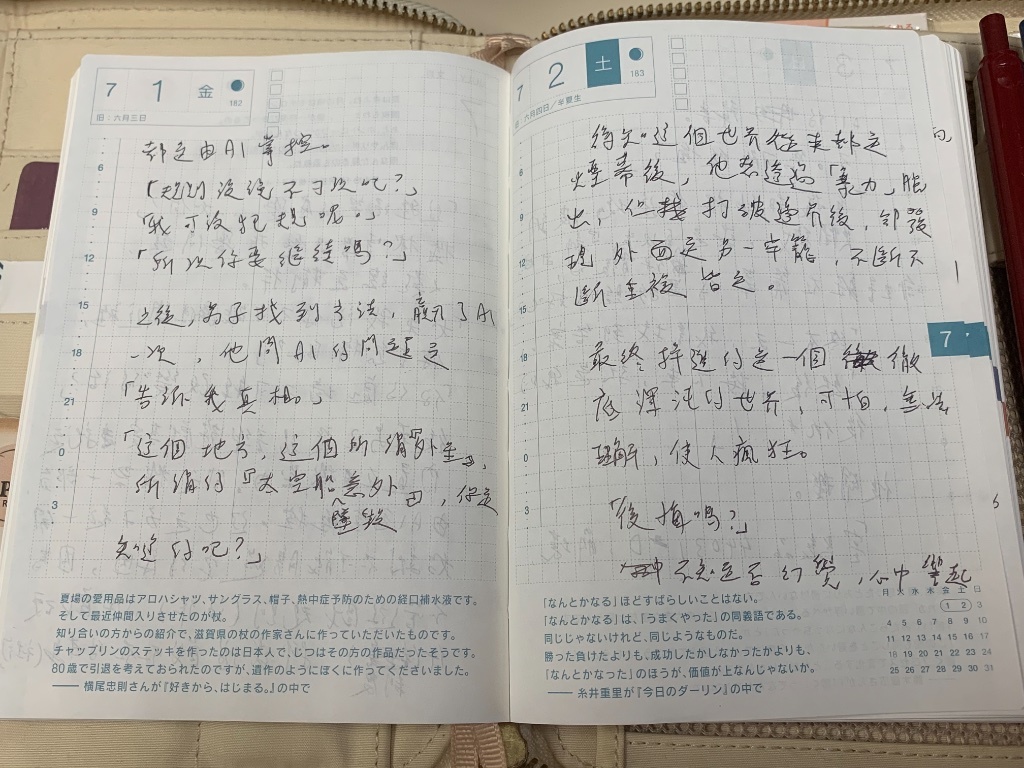 7 1 金
182
旧：六月三日
都是由AI掌控。
「規則沒說不可以吧？」
「我可沒犯規呢。」
「所以你要繼續嗎？」
之後，男子找到方法，贏了AI
一次，他問AI的問題是
「告訴我真相。」
「這個地方，這個所謂『外星』，
所謂的『太空船意外』，你是
墜毀
知道的吧？」
6
9
12
15
18
21
0
3
夏場の愛用品はアロハシャツ、サングラス、帽子、熱中症予防のための経口補水液です。
そして最近仲間入りさせたのが杖。
知り合いの方からの紹介で、滋賀県の杖の作家さんに作っていただいたものです。
チャップリンのステッキを作ったのは日本人で、じつはその方の作品だったそうです。
80歳で引退を考えておられたのですが、遺作のようにぼくに作ってくださいました。
── 横尾忠則さんが『好きから、はじまる。』の中で
7 2 土
183
旧：六月四日／半夏生
這個世界從來都是
後，他想透過「暴力」脫
出，但打破邊界後，卻發
現外面是另一牢籠，不斷不
斷重複皆是。
最終揮進的是一個 徹
底渾沌的世界，可怕，無法
理解，使人瘋狂。
「後悔嗎？」
不知是否幻覺，心中響起
6
9
12
15
18
21
0
3
7
「なんとかなる」ほどすばらしいことはない。
「なんとかなる」は、「うまくやった」の同義語である。
同じじゃないけれど、同じようなものだ。
勝った負けたよりも、成功したかしなかったかよりも、
「なんとかなった」のほうが、価値が上なんじゃないか。
── 糸井重里が『今日のダーリン』の中で
月 火 水 木 金 土 日
1 2 3
4 5 6 7 8 9 10
11 12 13 14 15 16 17
18 19 20 21 22 23 24
25 26 27 28 29 30 31